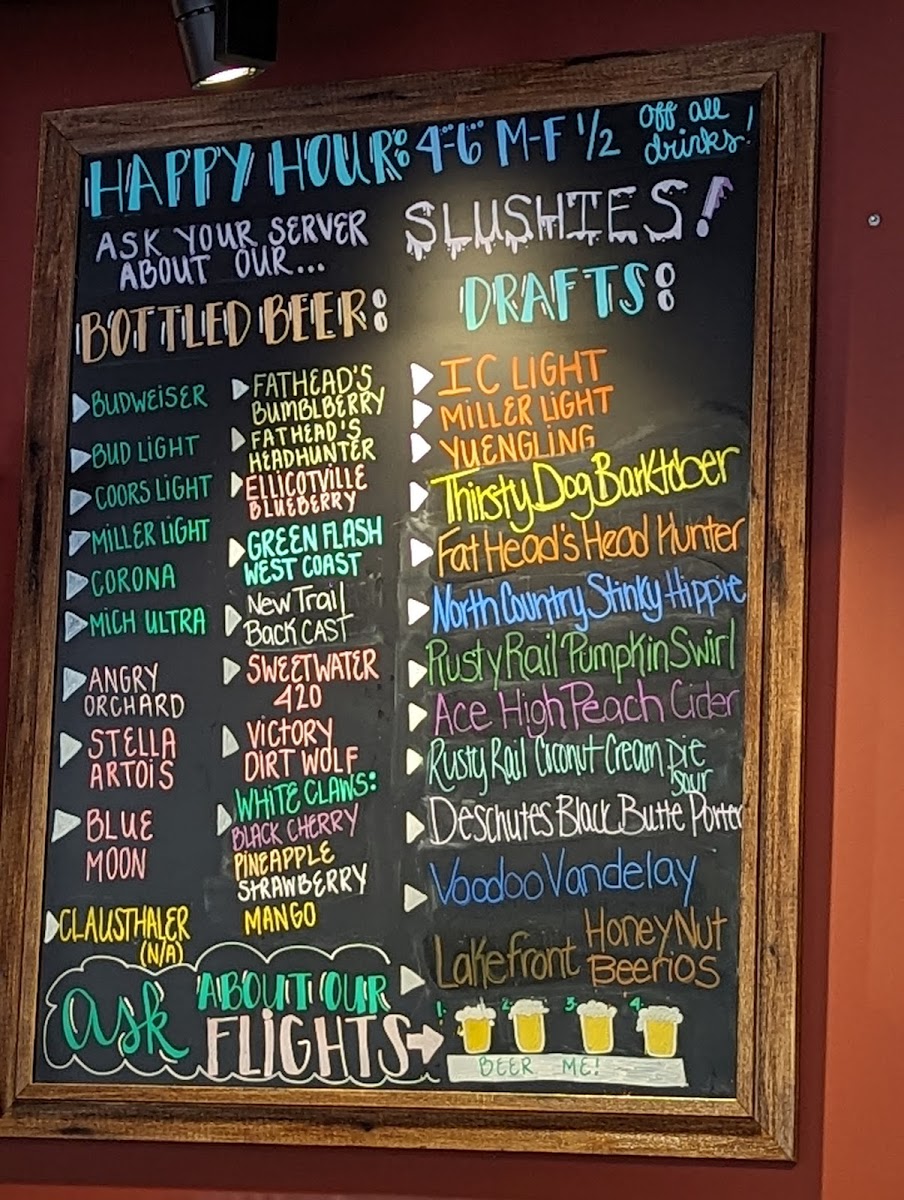 HAPPY HOUR: 4-6 M-F 1/2 off all drinks!
ASK YOUR SERVER
ABOUT OUR...
SLUSHIES!
BOTTLED BEER:
BUDWEISER
BUD LIGHT
COORS LIGHT
MILLER LIGHT
CORONA
MICH ULTRA
ANGRY
ORCHARD
STELLA
ARTOIS
BLUE
MOON
CLAUSTHALER
(N/A)
FATHEAD'S
BUMBLBERRY
FATHEAD'S
HEADHUNTER
ELLICOTVILLE
BLUEBERRY
GREEN FLASH
WEST COAST
New Trail
Back CAST
SWEETWATER
420
VICTORY
DIRT WOLF
WHITE CLAWS:
BLACK CHERRY
PINEAPPLE
STRAWBERRY
MANGO
DRAFTS:
IC LIGHT
MILLER LIGHT
YUENGLING
Thirsty Dog Barktober
Fat Head's Head Hunter
North Country Stinky Hippie
Rusty Rail Pumpkin Swirl
Ace High Peach Cider
Rusty Rail Coconut Cream Pie
Sour
Deschutes Black Butte Porter
Voodoo Vandelay
Lakefront Honey Nut
Beerios
Ask ABOUT OUR
FLIGHTS
1. 2. 3. 4.
BEER ME!